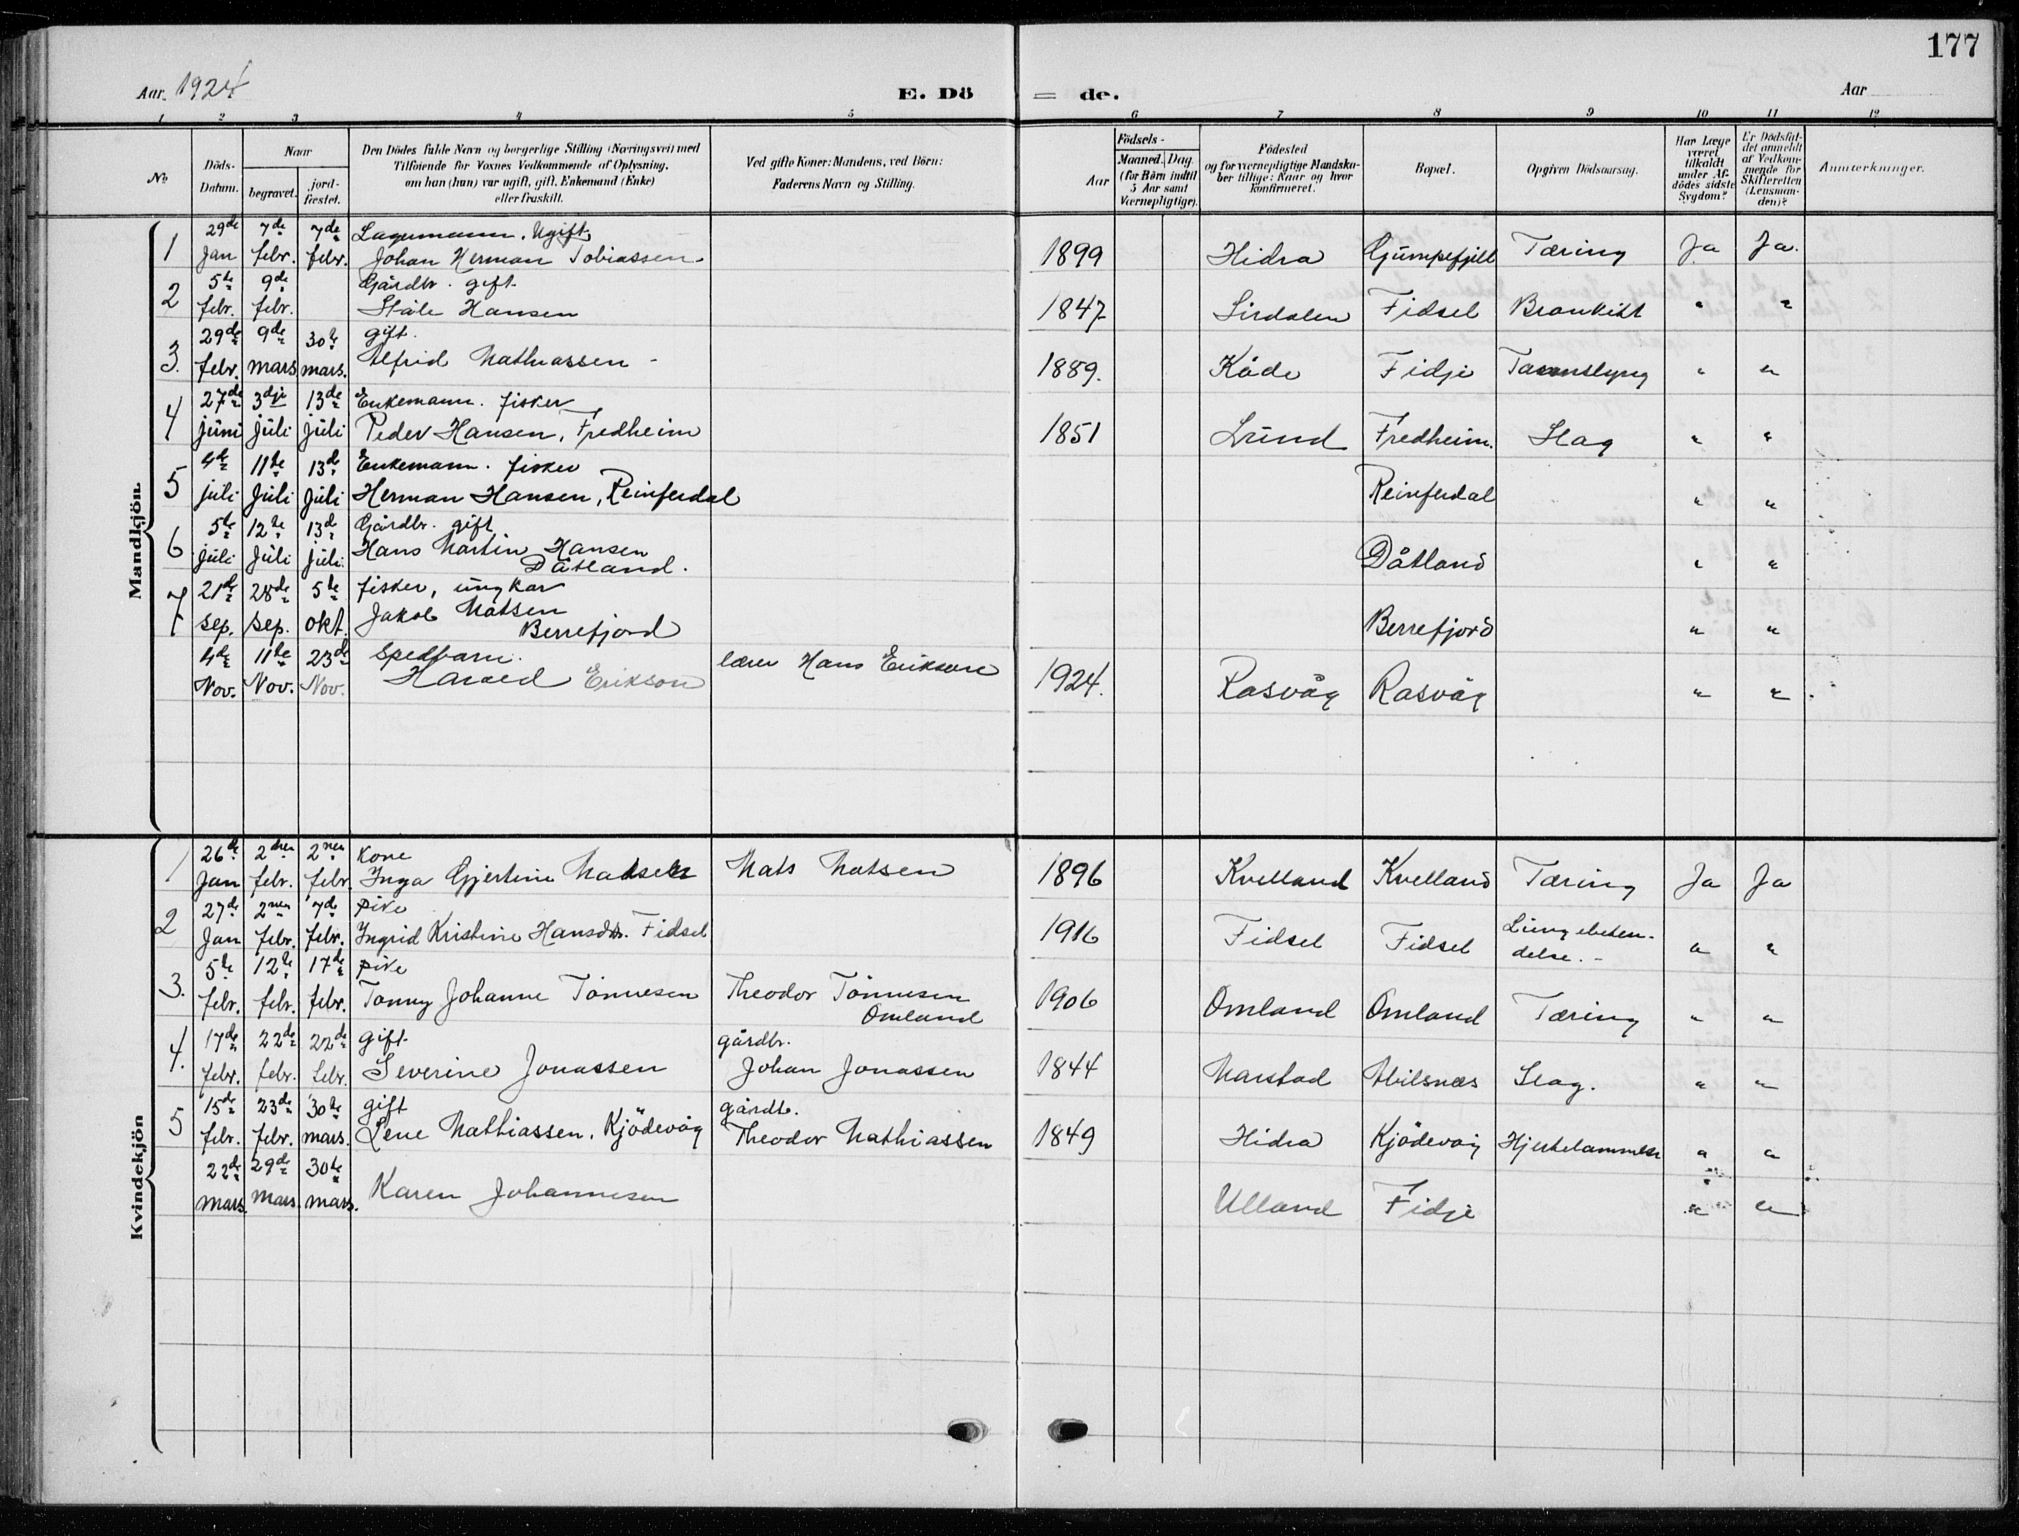 177
Aar. 1924
E. Dö = de.
Aar
1 2 3 4 5 6 7 8 9 10 11 12
No
Döds-Datum.
Naar
begravet.
jord-fæstet.
Den Dödes fulde Navn og borgerlige Stilling (Næringsvei) med
Tilföiende for Voxnes Vedkommende af Oplysning,
om han (hun) var ugift, gift, Enkemand (Enke)
eller fraskilt.
Ved gifte Koner: Mandens, ved Börn:
Faderens Navn og Stilling.
Födsels-
Aar
Maaned. Dag.
(for Börn indtil
5 Aar samt
Værnepligtige).
Födested
og for værnepligtige Mandska-
ber tillige: Naar og hvor
Konfirmeret.
Bopæl.
Opgiven Dödsaarsag.
Har Læge
været
tilkaldt
under Af-
dödes sidste
Sygdom?
Er Dödsfal-
det anmeldt
af Vedkom-
mende for
Skifteretten
(Lensman-
den)?
Anmærkninger.
Mandkjön.
29de 7de 7de Ugift
1 Jan febr. febr. Johan Herman Tobiassen. 1899 Hidra Gumpefjell Tæring Ja Ja.
5te 9de Gårdbr. gift
2 febr. febr. Ståle Hansen 1847 Sirdalen Fidsel Bronkitt " "
29de 9de 30te gift.
3. febr. mars mars. Alfrid Mathiassen - 1889. Kåde Fidje " "
27de 3dje 13de Enkemann. fisker
4 juni juli juli Peder Hansen, Fredheim 1851 Lund Fredheim. Slag " "
4de 11te 13de Enkemann. fisker
5 juli juli juli Herman Hansen, Reinferdal Reinferdal " "
5te 12te 13de Gårdbr. gift
6 juli juli juli. Hans Martin Hansen
Dåtland. Dåtland " "
21de 28de 5te fisker, ungkar
7 sep. sep. okt. Jakob Matsen
Berrefjord Berrefjord " "
4de 11te 23de Spedbarn.
Nov. Nov. Nov. Harald Erikson lærer Hans Eriksen 1924. Rasvåg Rasvåg " "
Kvindekjön
26de 2den 2nen Kone
1 Jan febr. febr. Inga Gjertine Madsen Mats Matsen 1896 Kvelland Kvelland Tæring Ja Ja
27de 2nen 7de pike
2 Jan febr. febr. Ingrid Kristine Hansdtr. Fidsel 1916 Fidsel Fidsel Lungebeten-
delse. - " "
5te 12te 17de pike
3. febr. febr. febr. Tonny Johanne Tönnesen Theodor Tönnesen
Omland 1906 Omland Omland Tæring " "
17de 22de 22de gift. gårdbr.
4. febr. febr. febr. Severine Jonassen Johan Jonassen 1844 Marstad Abilsnæs Slag. " "
15de 23de 30te gift gårdb.
5 febr. febr. mars. Lene Mathiassen, Kjödevåg Theodor Mathiassen 1849 Hidra Kjödevåg Hjertelammelse " "
22de 29de 30te
mars. mars. mars. Karen Johannesen Ulland Fidje " "